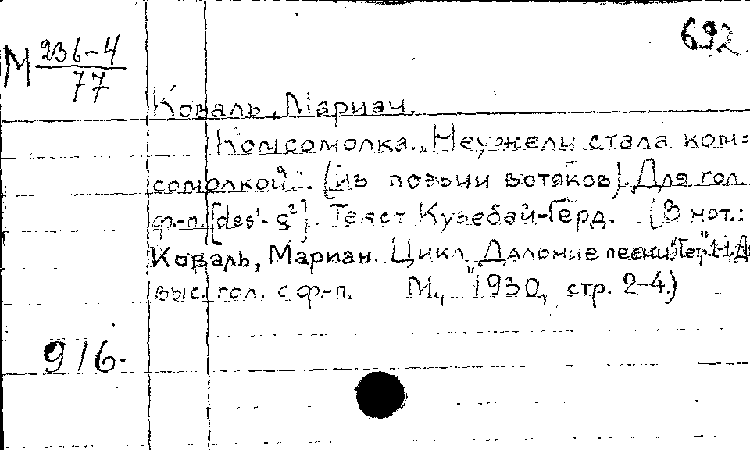 692
М 236-4
77
Коваль, Мариан.
Комсомолка. „Неужели стала ком=
сомолкой". (Из поэзии вотяков). Для гол.
ф-п. [des¹-g²]. Текст Кузебай-Герд. (В нот.:
Коваль, Мариан. Цикл Далекие песни
выс. гол. с ф-п. М., 1930, стр. 2-4.)
916.